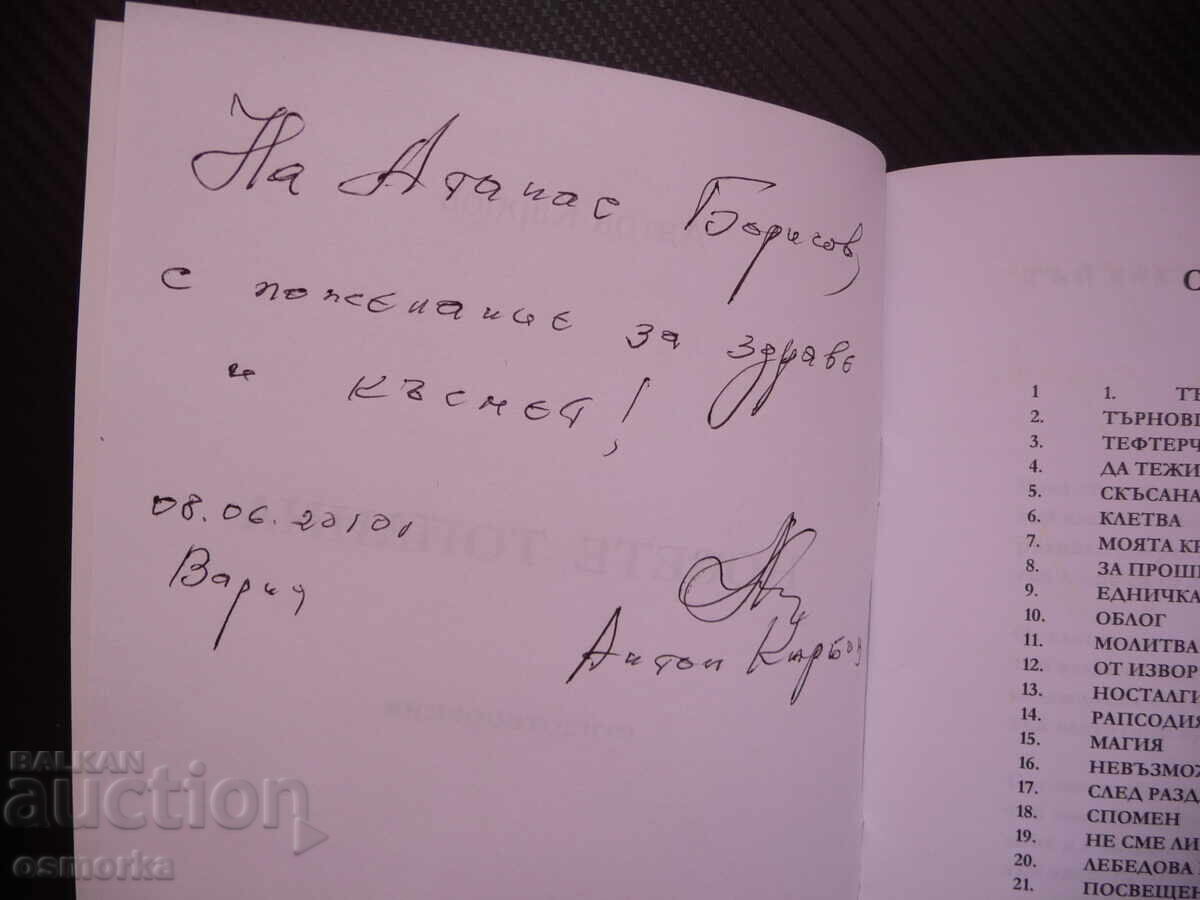 На Атанас Борисов,
с пожелание за здраве
и късмет!
08.06.2010,
Варна
Антон
1 1. ТЪ
2. ТЪРНОВ
3. ТЕФТЕРЧ
4. ДА ТЕЖИ
5. СКЪСАНА
6. КЛЕТВА
7. МОЯТА КР
8. ЗА ПРОШ
9. ЕДНИЧКА
10. ОБЛОГ
11. МОЛИТВА
12. ОТ ИЗВОР
13. НОСТАЛГИ
14. РАПСОДИЯ
15. МАГИЯ
16. НЕВЪЗМОЖ
17. СЛЕД РАЗД
18. СПОМЕН
19. НЕ СМЕ ЛИ
20. ЛЕБЕДОВА
21. ПОСВЕЩЕН
BALKAN
auction
osmorka